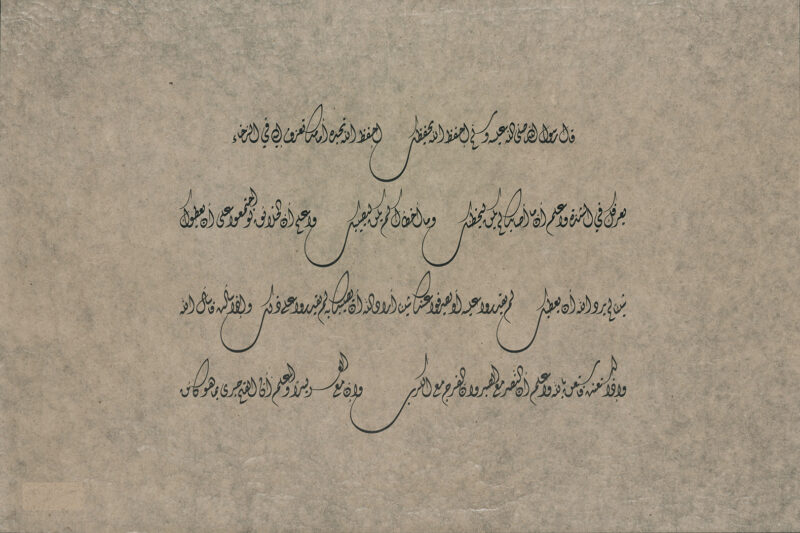 قال رسول الله صلى الله عليه وسلم احفظ الله يحفظك احفظ الله تجده أمامك تعرف إلى الله في الرخاء
يعرفك في الشدة واعلم أن ما أصابك لم يكن ليخطئك وما أخطأك لم يكن ليصيبك واعلم أن الخلائق لو اجتمعوا على أن يعطوك
شيئا لم يرد الله أن يعطيك لم يقدروا عليه أو يصرفوا عنك شيئا أراد الله أن يصيبك لم يقدروا على ذلك وإذا سألت فاسأل الله
وإذا استعنت فاستعن بالله واعلم أن النصر مع الصبر وان الفرج مع الكرب وان مع العسر يسرا واعلم أن القلم جرى بما هو كائن